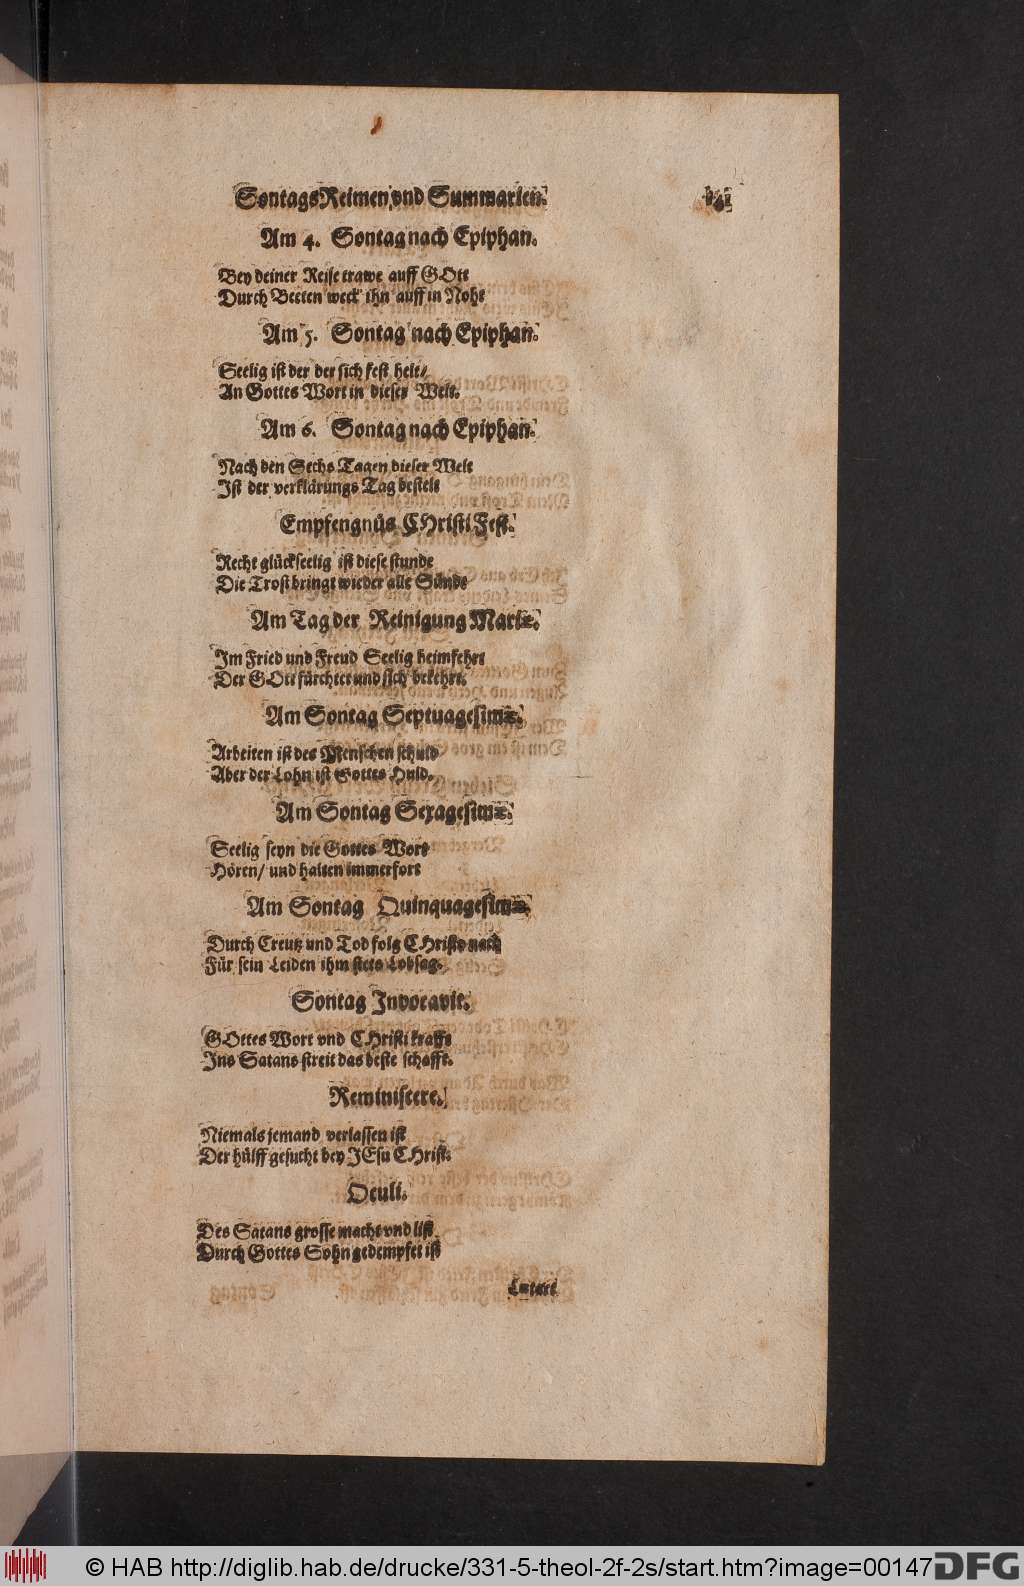 SontagsReimen, vnd Summarien.
Am 4. Sontag nach Epiphan.
Bey deiner Reise trawe auff GOtt
Durch Beeten weck ihn auff in Noht
Am 5. Sontag nach Epiphan.
Seelig ist der der sich fest helt/
An Gottes Wort in dieser Welt.
Am 6. Sontag nach Epiphan.
Nach den Sechs Tagen dieser Welt
Ist der verklärungs Tag bestelt
Empfengnüs CHristi Fest.
Recht glückseelig ist diese stunde
Die Trost bringt wieder alle Sünde
Am Tag der Reinigung Mariæ.
Im Fried und Freud Seelig heimfehrt
Der GOtt fürchtet und sich bekehrt.
Am Sontag Septuagesimæ.
Arbeiten ist des Menschen schuld
Aber der Lohn ist Gottes Huld.
Am Sontag Sexagesimæ.
Seelig seyn die Gottes Wort
Hören/ und halten immerfort
Am Sontag Quinquagesimæ.
Durch Creutz und Tod folg CHristo nach
Für sein Leiden ihm stets Lobsag.
Sontag Invocavit.
GOttes Wort vnd CHristi krafft
Ins Satans streit das beste schafft.
Reminiscere.
Niemals jemand verlassen ist
Der hülff gesucht bey JEsu CHrist.
Oculi.
Des Satans grosse macht vnd list
Durch Gottes Sohn gedempfet ist
Lætare
© HAB http://diglib.hab.de/drucke/331-5-theol-2f-2s/start.htm?image=00147
DFG